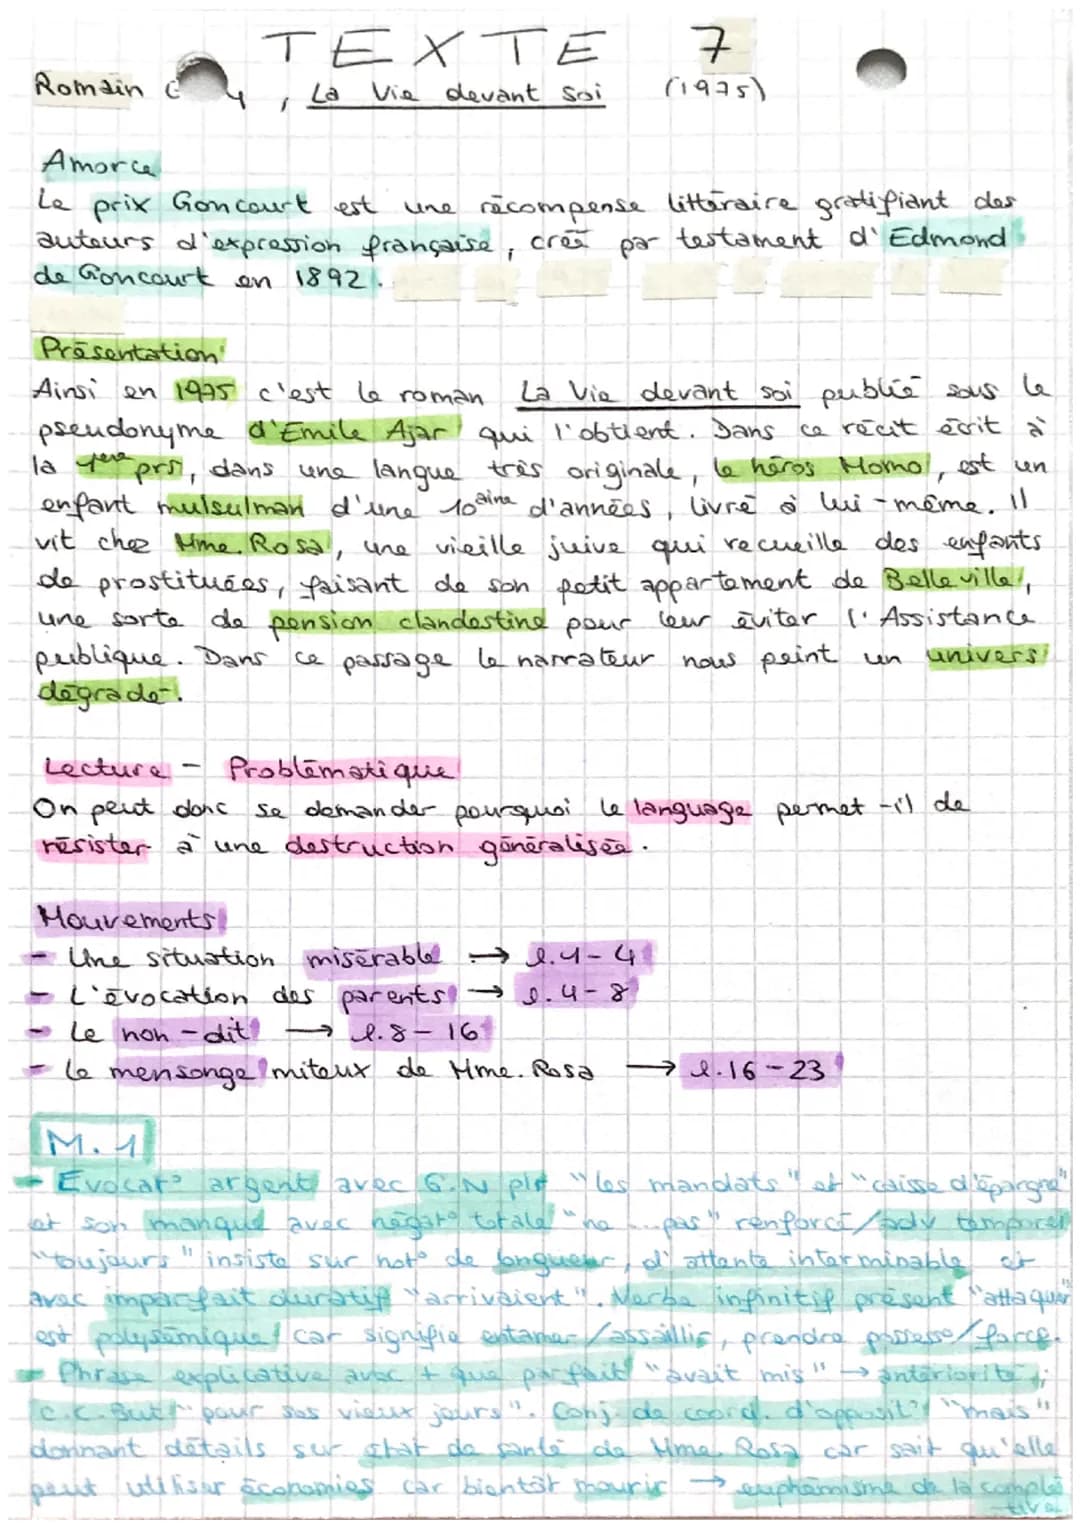 TEXTE 7
Romain G y, La Vie devant soi (1975)
Amorce
Le prix Goncourt est une récompense littéraire gratifiant des
auteurs d'expression française, créé par testament d'Edmond
de Goncourt en 1892.
Présentation
Ainsi en 1975 c'est le roman La Vie devant soi publié sous le
pseudonyme d'Emile Ajar qui l'obtient. Dans ce récit écrit à
la 1ère prs, dans une langue très originale, le héros Momo, est un
enfant mulsulman d'une 10aine d'années, livré à lui-même. Il
vit chez Mme. Rosa, une vieille juive qui recueille des enfants
de prostituées, faisant de son petit appartement de Belleville,
une sorte de pension clandestine pour leur éviter l'Assistance
publique. Dans ce passage le narrateur nous peint un univers
dégradé.
Lecture - Problématique
On peut donc se demander pourquoi le language permet-il de
résister à une destruction généralisée.
Mouvements
- Une situation misérable → l.1-4
- L'évocation des parents → l.4-8
- Le non-dit → l.8-16
- Le mensonge miteux de Mme. Rosa → l.16-23
M.1
- Évocat° argent avec G.N plr "les mandats" et "caisse d'épargne"
et son manque avec négat° totale "ne ...pas" renforcé/adv temporel
"toujours" insiste sur not° de longueur, d'attente interminable et
avec imparfait duratif "arrivaient". Verbe infinitif présent "attaquer"
est polysémique car signifie entamer/assaillir, prendre possess°/force.
- Phrase explicative avec + que parfait "avait mis" → antériorité;
C.C.But "pour ses vieux jours". Conj. de coord. d'opposit° "mais"
donnant détails sur état de santé de Mme. Rosa car sait qu'elle
peut utiliser économies car bientôt mourir → euphémisme de la complé
-tive